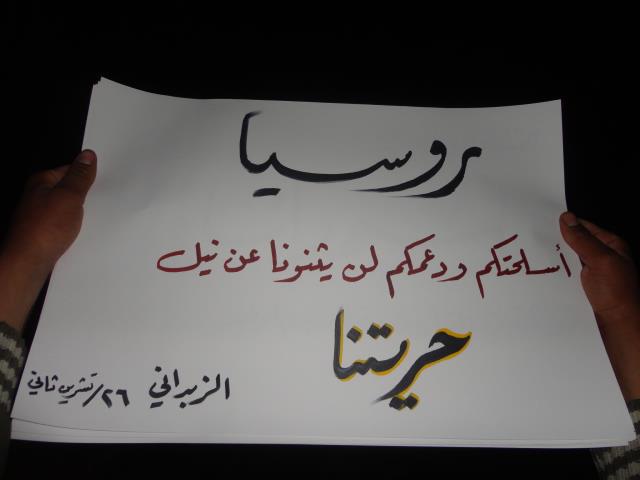 روسيا
أسلحتكم ودعمكم لن يثنونا عن نيل
حريتنا
الزبداني ٢٦/تشرين ثاني